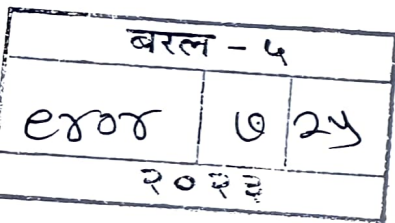 बरल - ५
९४०४ ७ २५
२०२३